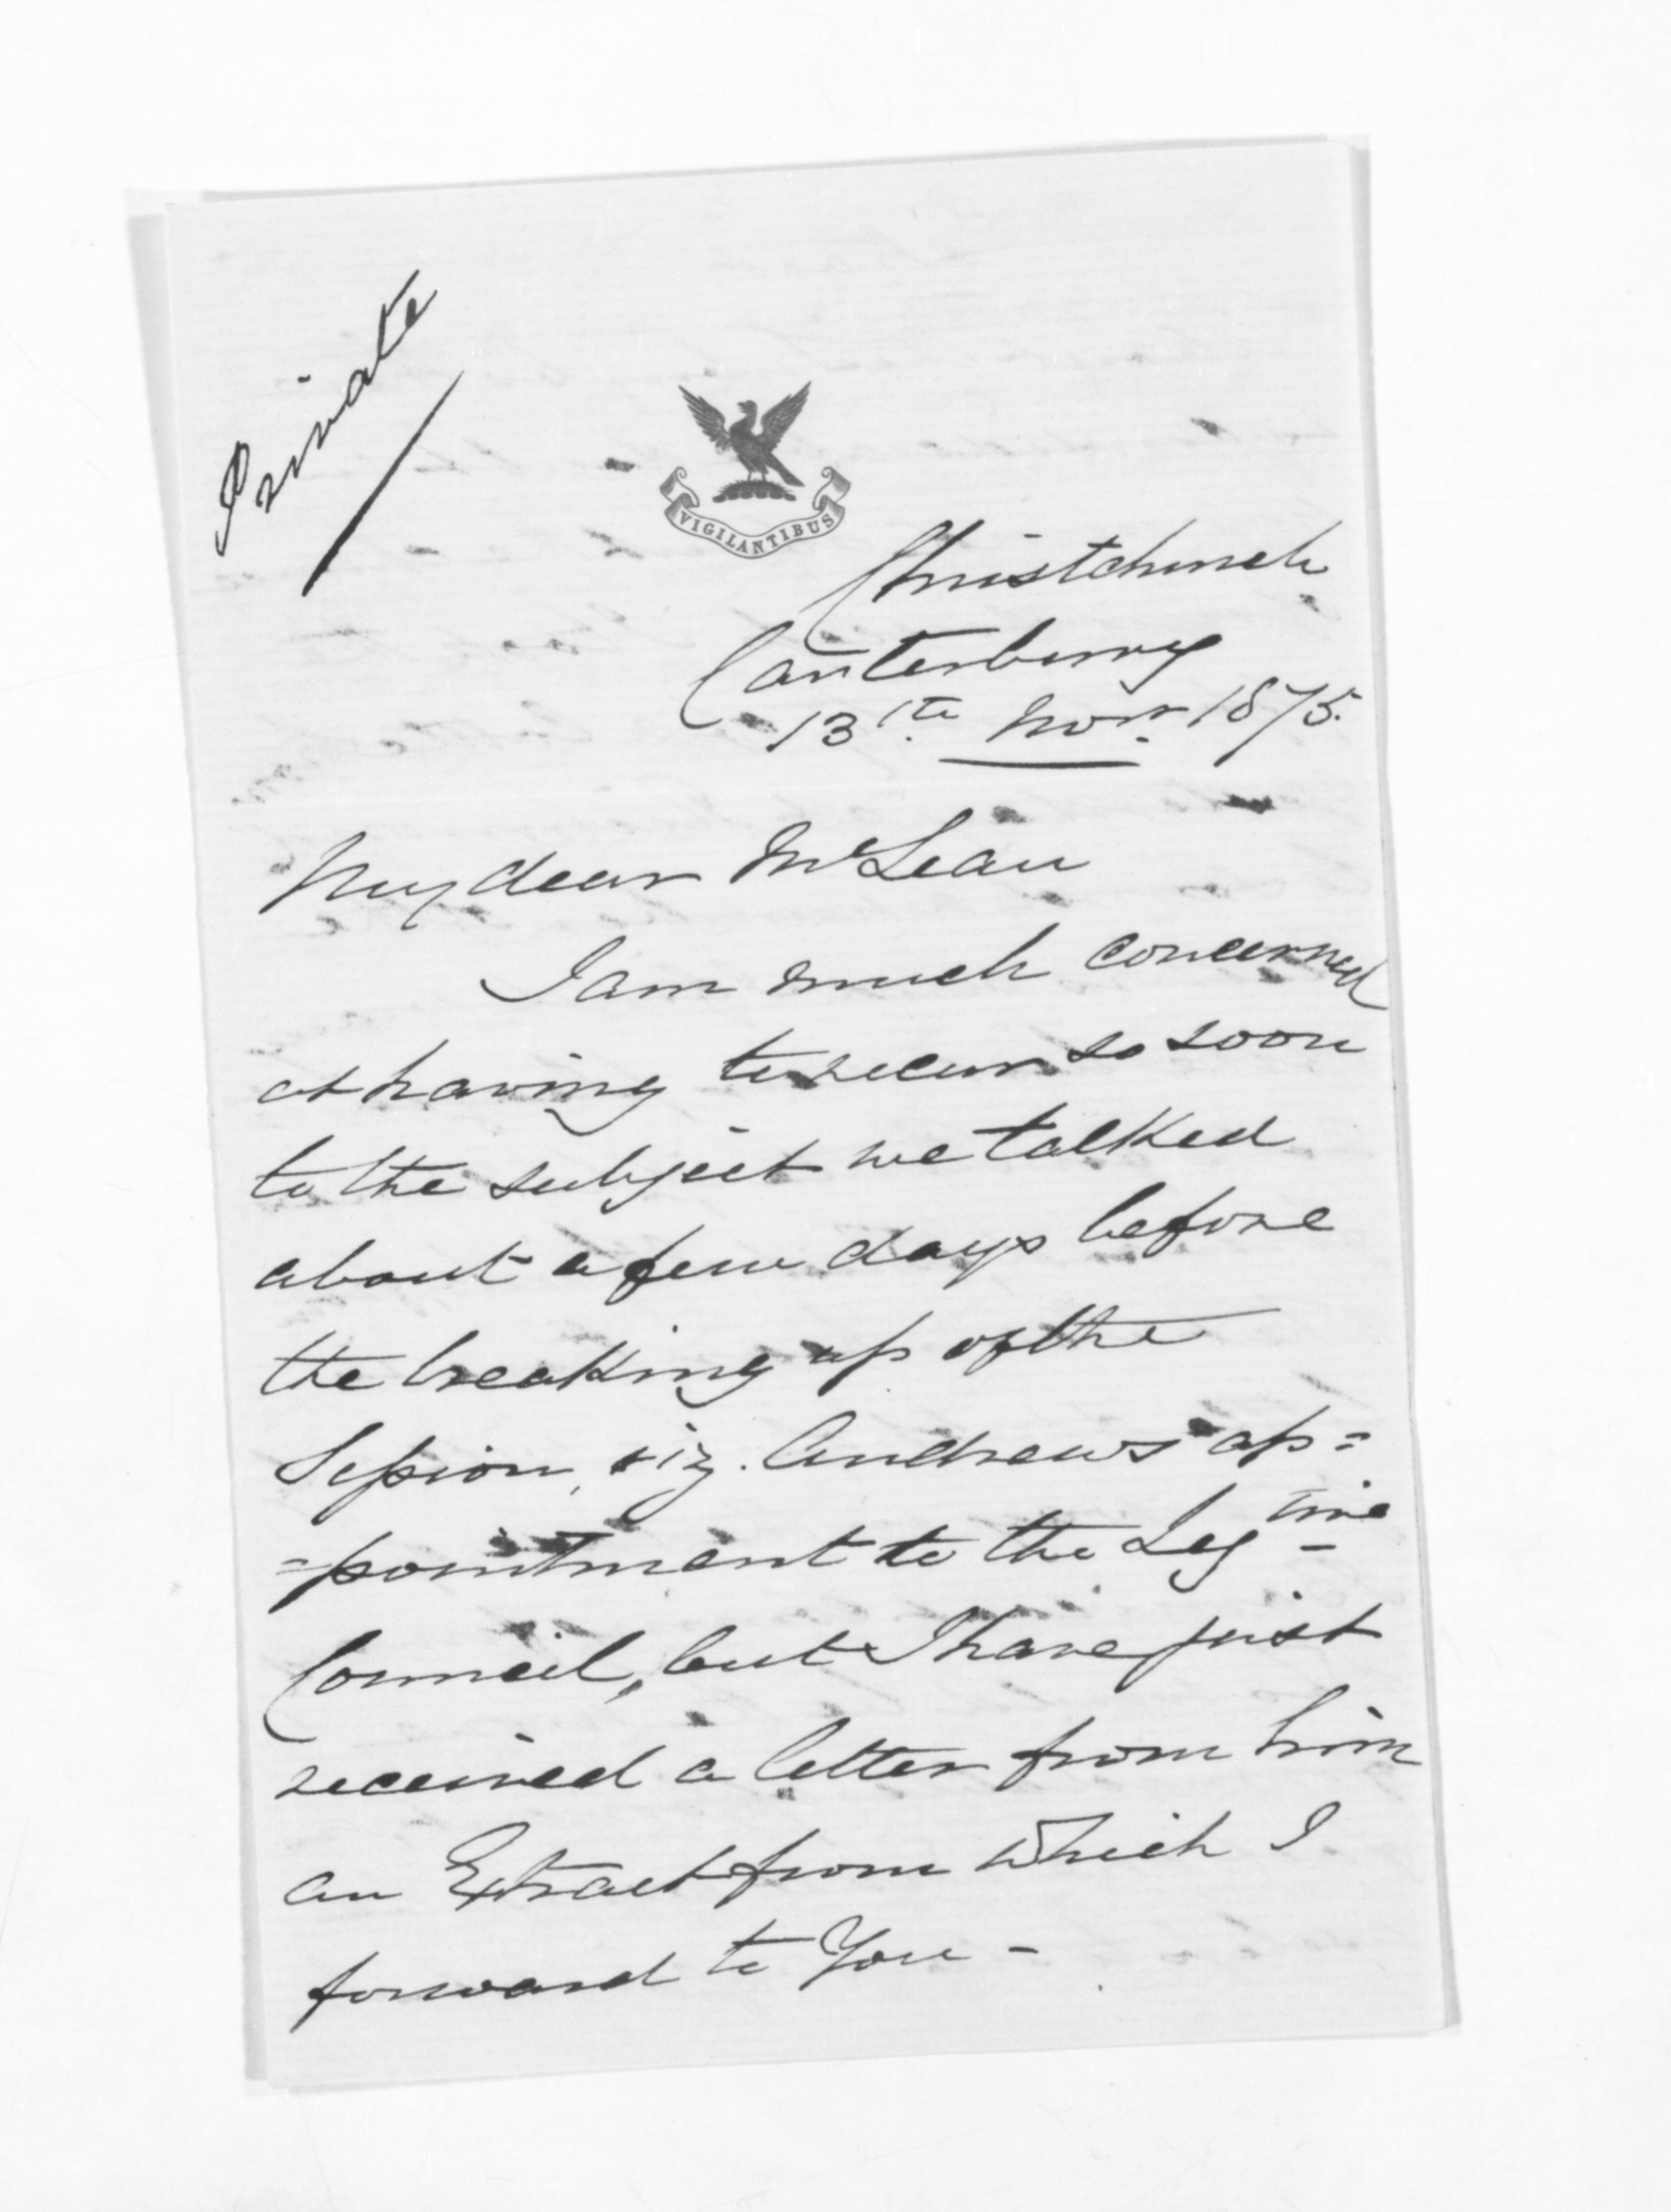 Private
VIGILANTIBUS
Christchurch
Canterbury
13th. Novr. 1875.
My dear McLean
I am much concerned
at having to recur so soon
to the subject we talked
about a few days before
the breaking up of the
Session, viz. Andrew's ap=
=pointment to the Legtive
Council, but I have just
received a letter from him
an Extract from which I
forward to You -